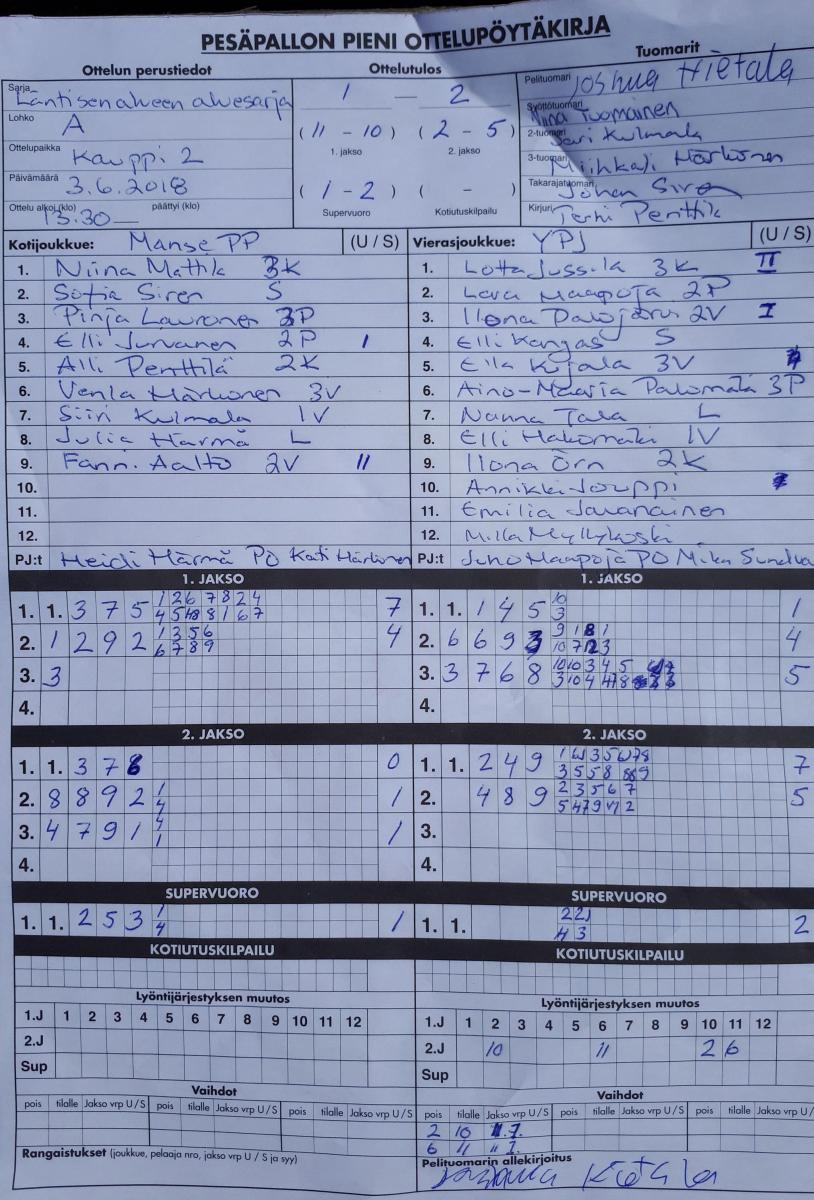 PESÄPALLON PIENI OTTELUPÖYTÄKIRJA
Ottelun perustiedot
Ottelutulos
Tuomarit
Sarja Läntisen alueen aluesarja
Lohko A
Ottelupaikka Kauppi 2
Päivämäärä 3.6.2018
Ottelu alkoi (klo) 13.30 päättyi (klo)
1 — 2
( 11 - 10 ) ( 2 - 5 )
1. jakso 2. jakso
( 1 - 2 ) ( - )
Supervuoro Kotiutuskilpailu
Pelituomari Joshua Hietala
Syöttötuomari Niina Tuomainen
2-tuomari Jari Kulmala
3-tuomari Miihkali Härkönen
Takarajatuomari Johan Siren
Kirjuri Terhi Penttilä
Kotijoukkue: Manse PP (U / S)
1. Niina Mattila 3K
2. Sofia Siren S
3. Pinja Lauronen 3P
4. Elli Jurvanen 2P I
5. Alli Penttilä 2K
6. Venla Härkönen 3V
7. Siiri Kulmala 1V
8. Julia Härmä L
9. Fanni Aalto 2V II
10.
11.
12.
PJ:t Heidi Härmä PO Kati Härkönen
Vierasjoukkue: YPJ (U / S)
1. Lotta Jussila 3K II
2. Maapoja 2P
3. Ilona Palojärvi 2V I
4. Elli Kangas S
5. Kujala 3V
6. Aino-Maaria Palomäki 3P
7. Nanna Tala L
8. Elli Hakomäki 1V
9. Ilona Örn 2K
10. Annikki Jouppi
11. Emilia
12. Milla Myllykoski
PJ:t Juho Maapoja PO Mika
1. JAKSO
1. 1. 3 7 5 7
2. 1 2 9 2 4
1 3 5 6
6 7 8 9
3. 3
4.
1. JAKSO
1. 1. 1 4 5 1
10
3
2. 6 6 9 3 4
3. 3 7 6 8 5
4.
2. JAKSO
1. 1. 3 7 8 0
2. 8 8 9 2 1
1
4
3. 4 7 9 1 1
4
1
4.
2. JAKSO
1. 1. 2 4 9 7
2. 4 8 9 5
2 3 5 6 7
3.
4.
SUPERVUORO
1. 1. 2 5 3 1
1
4
SUPERVUORO
1. 1. 2
KOTIUTUSKILPAILU
KOTIUTUSKILPAILU
Lyöntijärjestyksen muutos
1.J 1 2 3 4 5 6 7 8 9 10 11 12
2.J
Sup
Lyöntijärjestyksen muutos
1.J 1 2 3 4 5 6 7 8 9 10 11 12
2.J 10 11 2 6
Sup
Vaihdot
pois tilalle Jakso vrp U / S pois tilalle Jakso vrp U / S pois tilalle Jakso vrp U / S
Vaihdot
pois tilalle Jakso vrp U / S pois tilalle Jakso vrp U / S pois tilalle Jakso vrp U /
2 10
6 11
Rangaistukset (joukkue, pelaaja nro, jakso vrp U / S ja syy)
Pelituomarin allekirjoitus